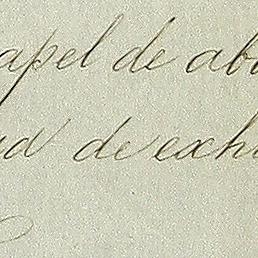 apel de ab
ud de exh